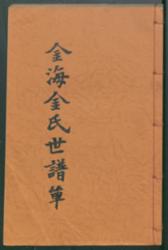 金海金氏世譜單